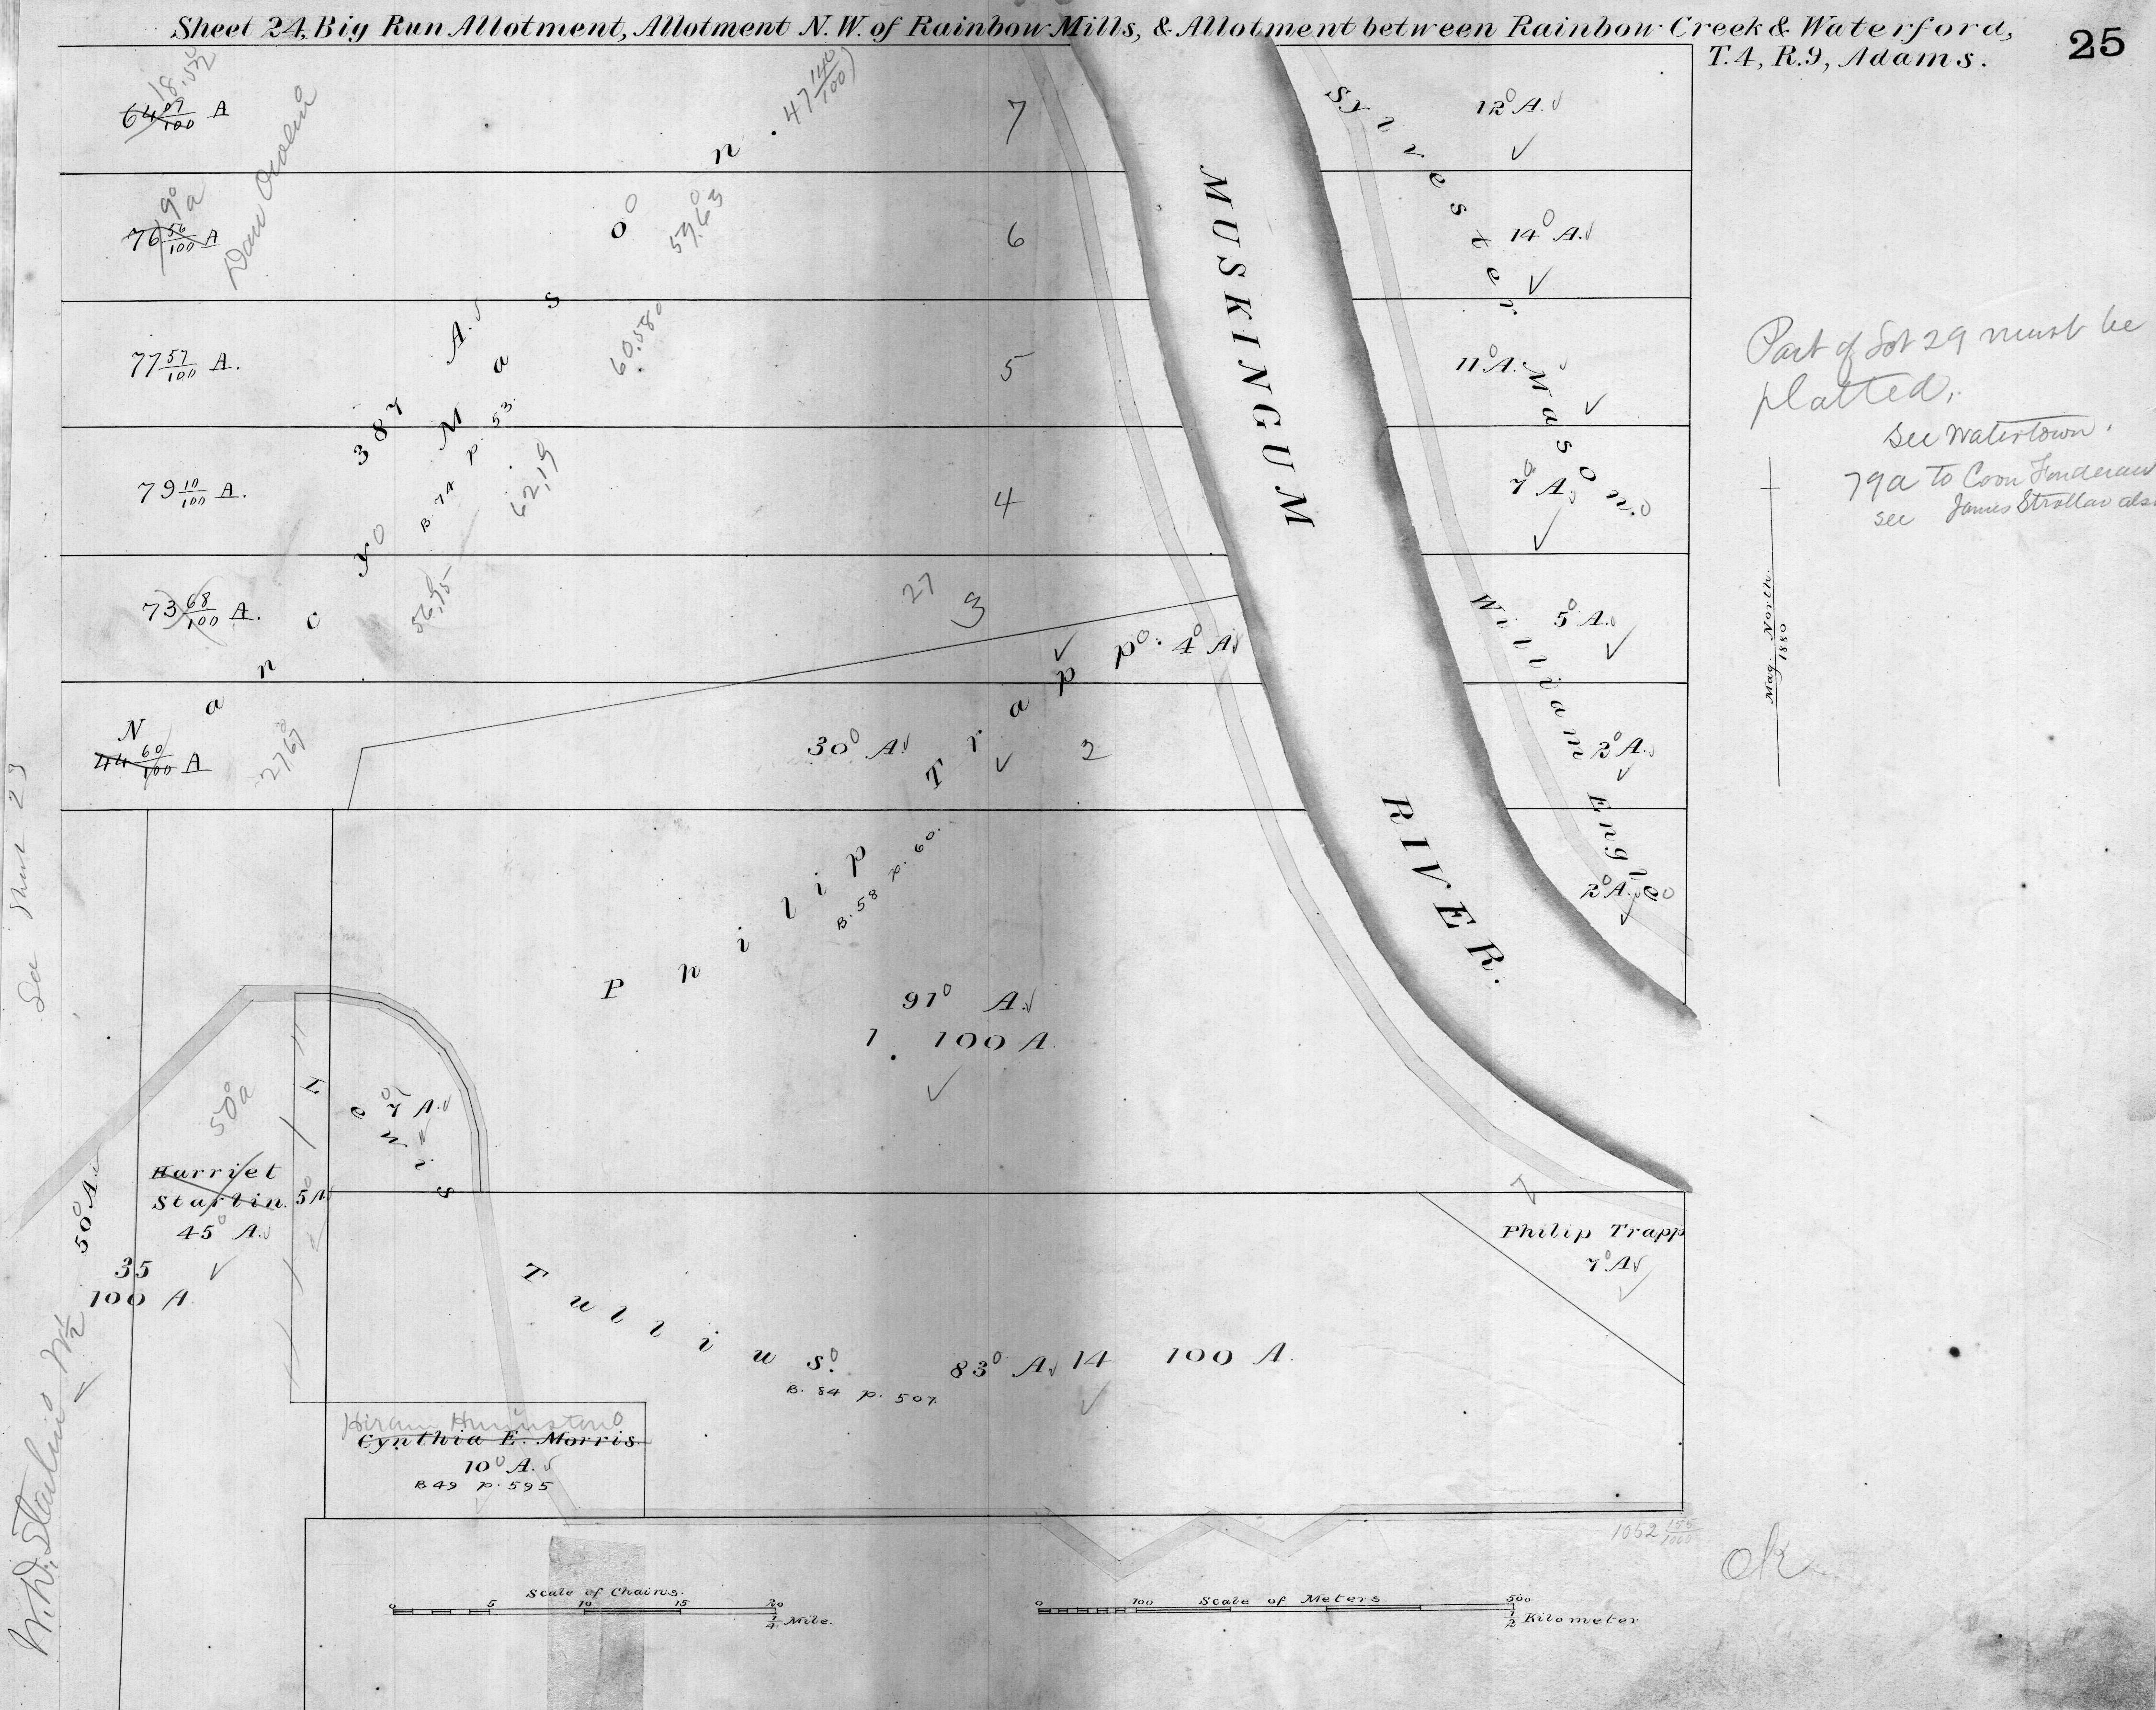 Sheet 24, Big Run Allotment, Allotment N.W. of Rainbow Mills, & Allotment between Rainbow Creek & Waterford,
T.4, R.9, Adams.
25
18.572
64 07/100 A
47 140/100
7
12° A.
9° a
76 56/100 A
59.63
6
14° A.
77 57/100 A.
60.580
5
11° A.
79 10/100 A.
62,19
4
7° A.
73 68/100 A.
56,95
27
3
5° A.
44 60/100 A
27.67
Nancy A. Mason.
387
B. 74 p. 53.
MUSKINGUM
RIVER.
Sylvester Mason.
William Engle
2° A.
2° A.
4° A
30° A.
2
Philip Trapp.
B. 58 p. 60.
91° A.
1 100 A.
Part of Lot 29 must be
platted.
See Watertown.
79a to Coon
see James
Mag. North.
1880
See Sheet 23
50° a
50° A.
Harriet
Starlin.
45° A.
5 A
35
100 A
W.D. Starlin W 1/2
7 A.
Lewis Tullius.
83° A. 14 100 A.
B. 84 p. 507.
Philip Trapp
7° A
Hiram
Cynthia E. Morris.
10° A.
B 49 p. 595
1052 155/1000
ok
Scale of Chains.
0 5 10 15 20
1/4 Mile.
Scale of Meters.
0 100 500
1/2 Kilometer